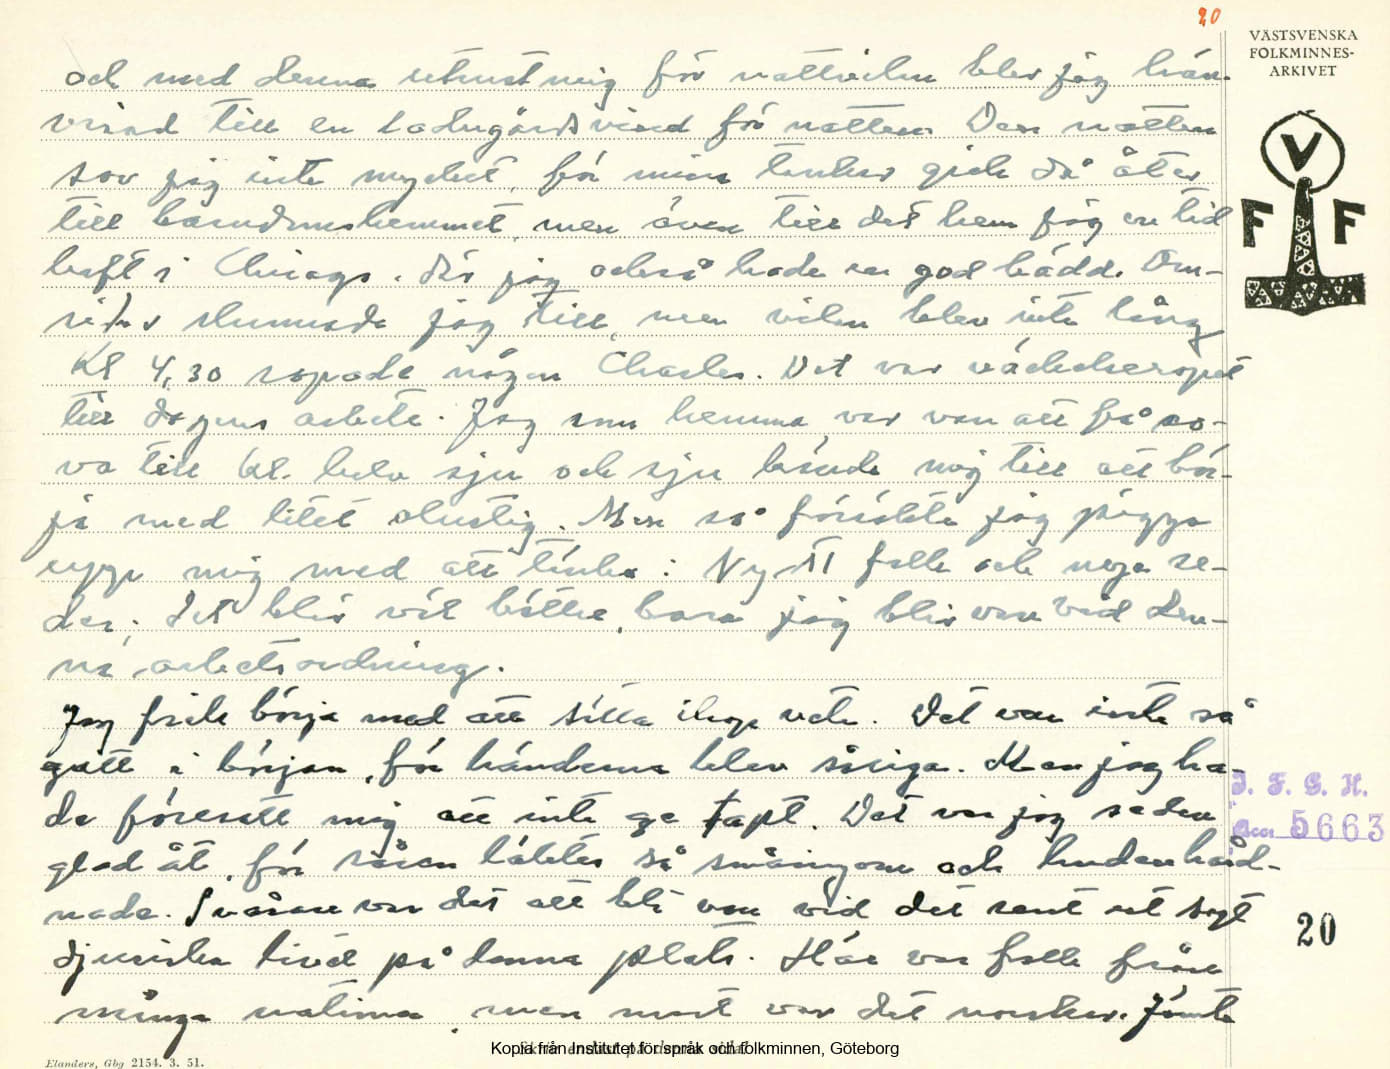 20
VÄSTSVENSKA
FOLKMINNES-
ARKIVET
och med denna utrustning för nattvilan blev jag hän-
visad till en ladugårdsvind för natten. Den natten
sov jag inte mycket, för mina tankar gick då åter
till barndomshemmet, men även till det hem jag en tid
haft i Chicago. där jag också hade en god bädd. Om-
sider slumrade jag till, men vilan blev inte lång
Kl 4,30 ropade någon Charles. Det var väckelseropet
till dagens arbete. Jag som hemma var van att få so-
va till kl. halv sju och sju kände mig till att bör-
ja med litet olustig. Men så försökte jag pigga
upp mig med att tänka: Nytt folk och nya se-
der; det blir väl bättre, bara jag blir van vid den-
na arbetsordning.
Jag fick börja med att sätta ihop vete. Det var inte så
gott i början, för händerna blev såriga. Men jag ha-
de föresatt mig att inte ge tapt. Det var jag sedan
glad åt, för såren läktes så småningom och huden hård-
nade. Svårare var det att bli van vid det rent ut sagt
djuriska livet på denna plats. Här var folk från
många nationer, men mest var det norskar. Jämte
V
F F
I. F. G. H.
Acc. 5663
20
Kopia från Institutet för språk och folkminnen, Göteborg
Elanders, Gbg 2154. 3. 51.